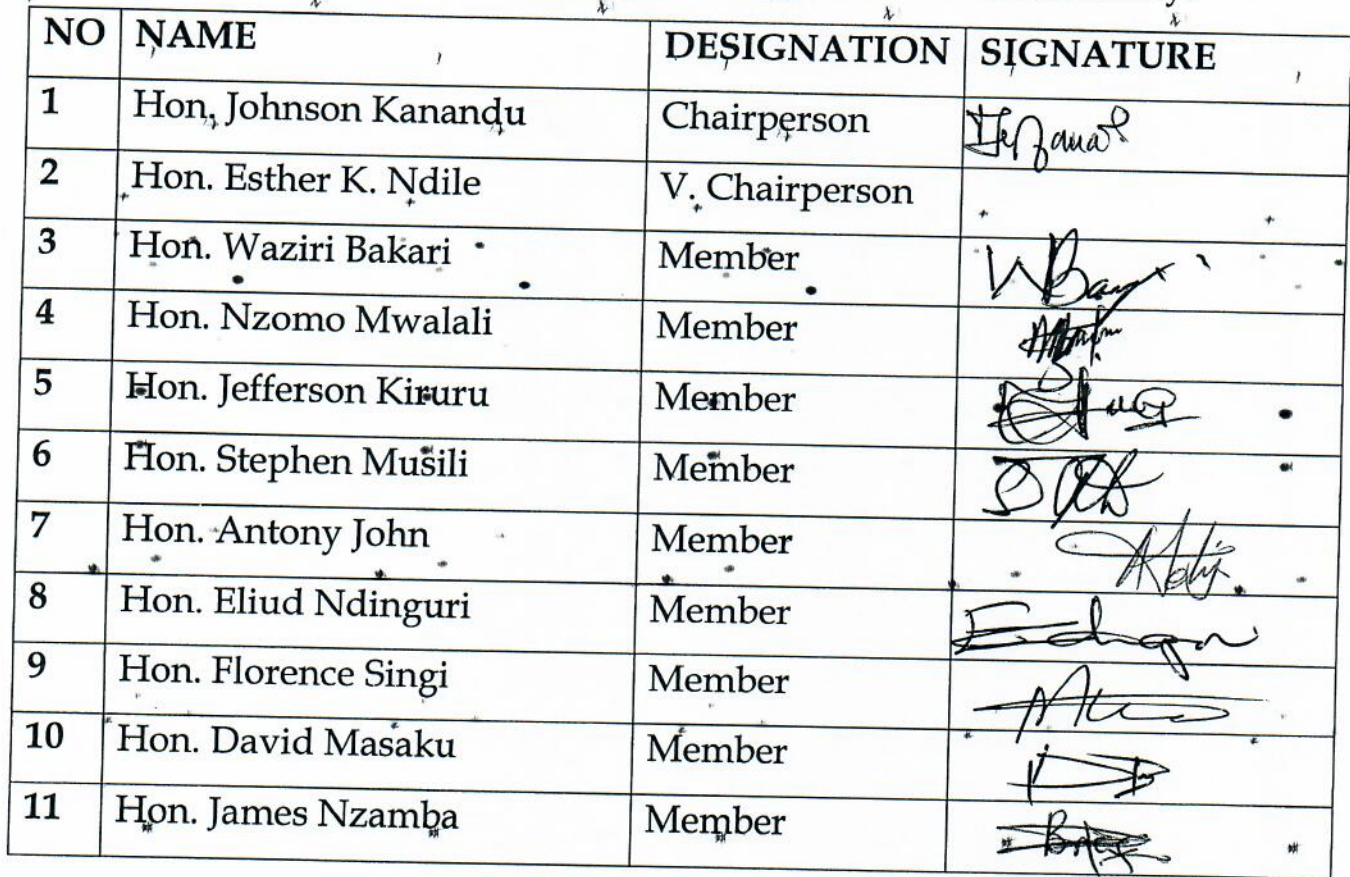 NO NAME DESIGNATION SIGNATURE
1 Hon. Johnson Kanandu Chairperson
2 Hon. Esther K. Ndile V. Chairperson
3 Hon. Waziri Bakari Member
4 Hon. Nzomo Mwalali Member
5 Hon. Jefferson Kiruru Member
6 Hon. Stephen Musili Member
7 Hon. Antony John Member
8 Hon. Eliud Ndinguri Member
9 Hon. Florence Singi Member
10 Hon. David Masaku Member
11 Hon. James Nzamba Member